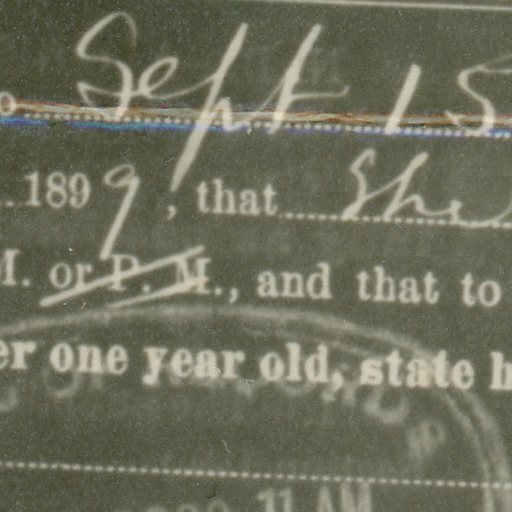 o Sept 15
1899, that She
M. or P. M., and that to
er one year old, state h
11 AM